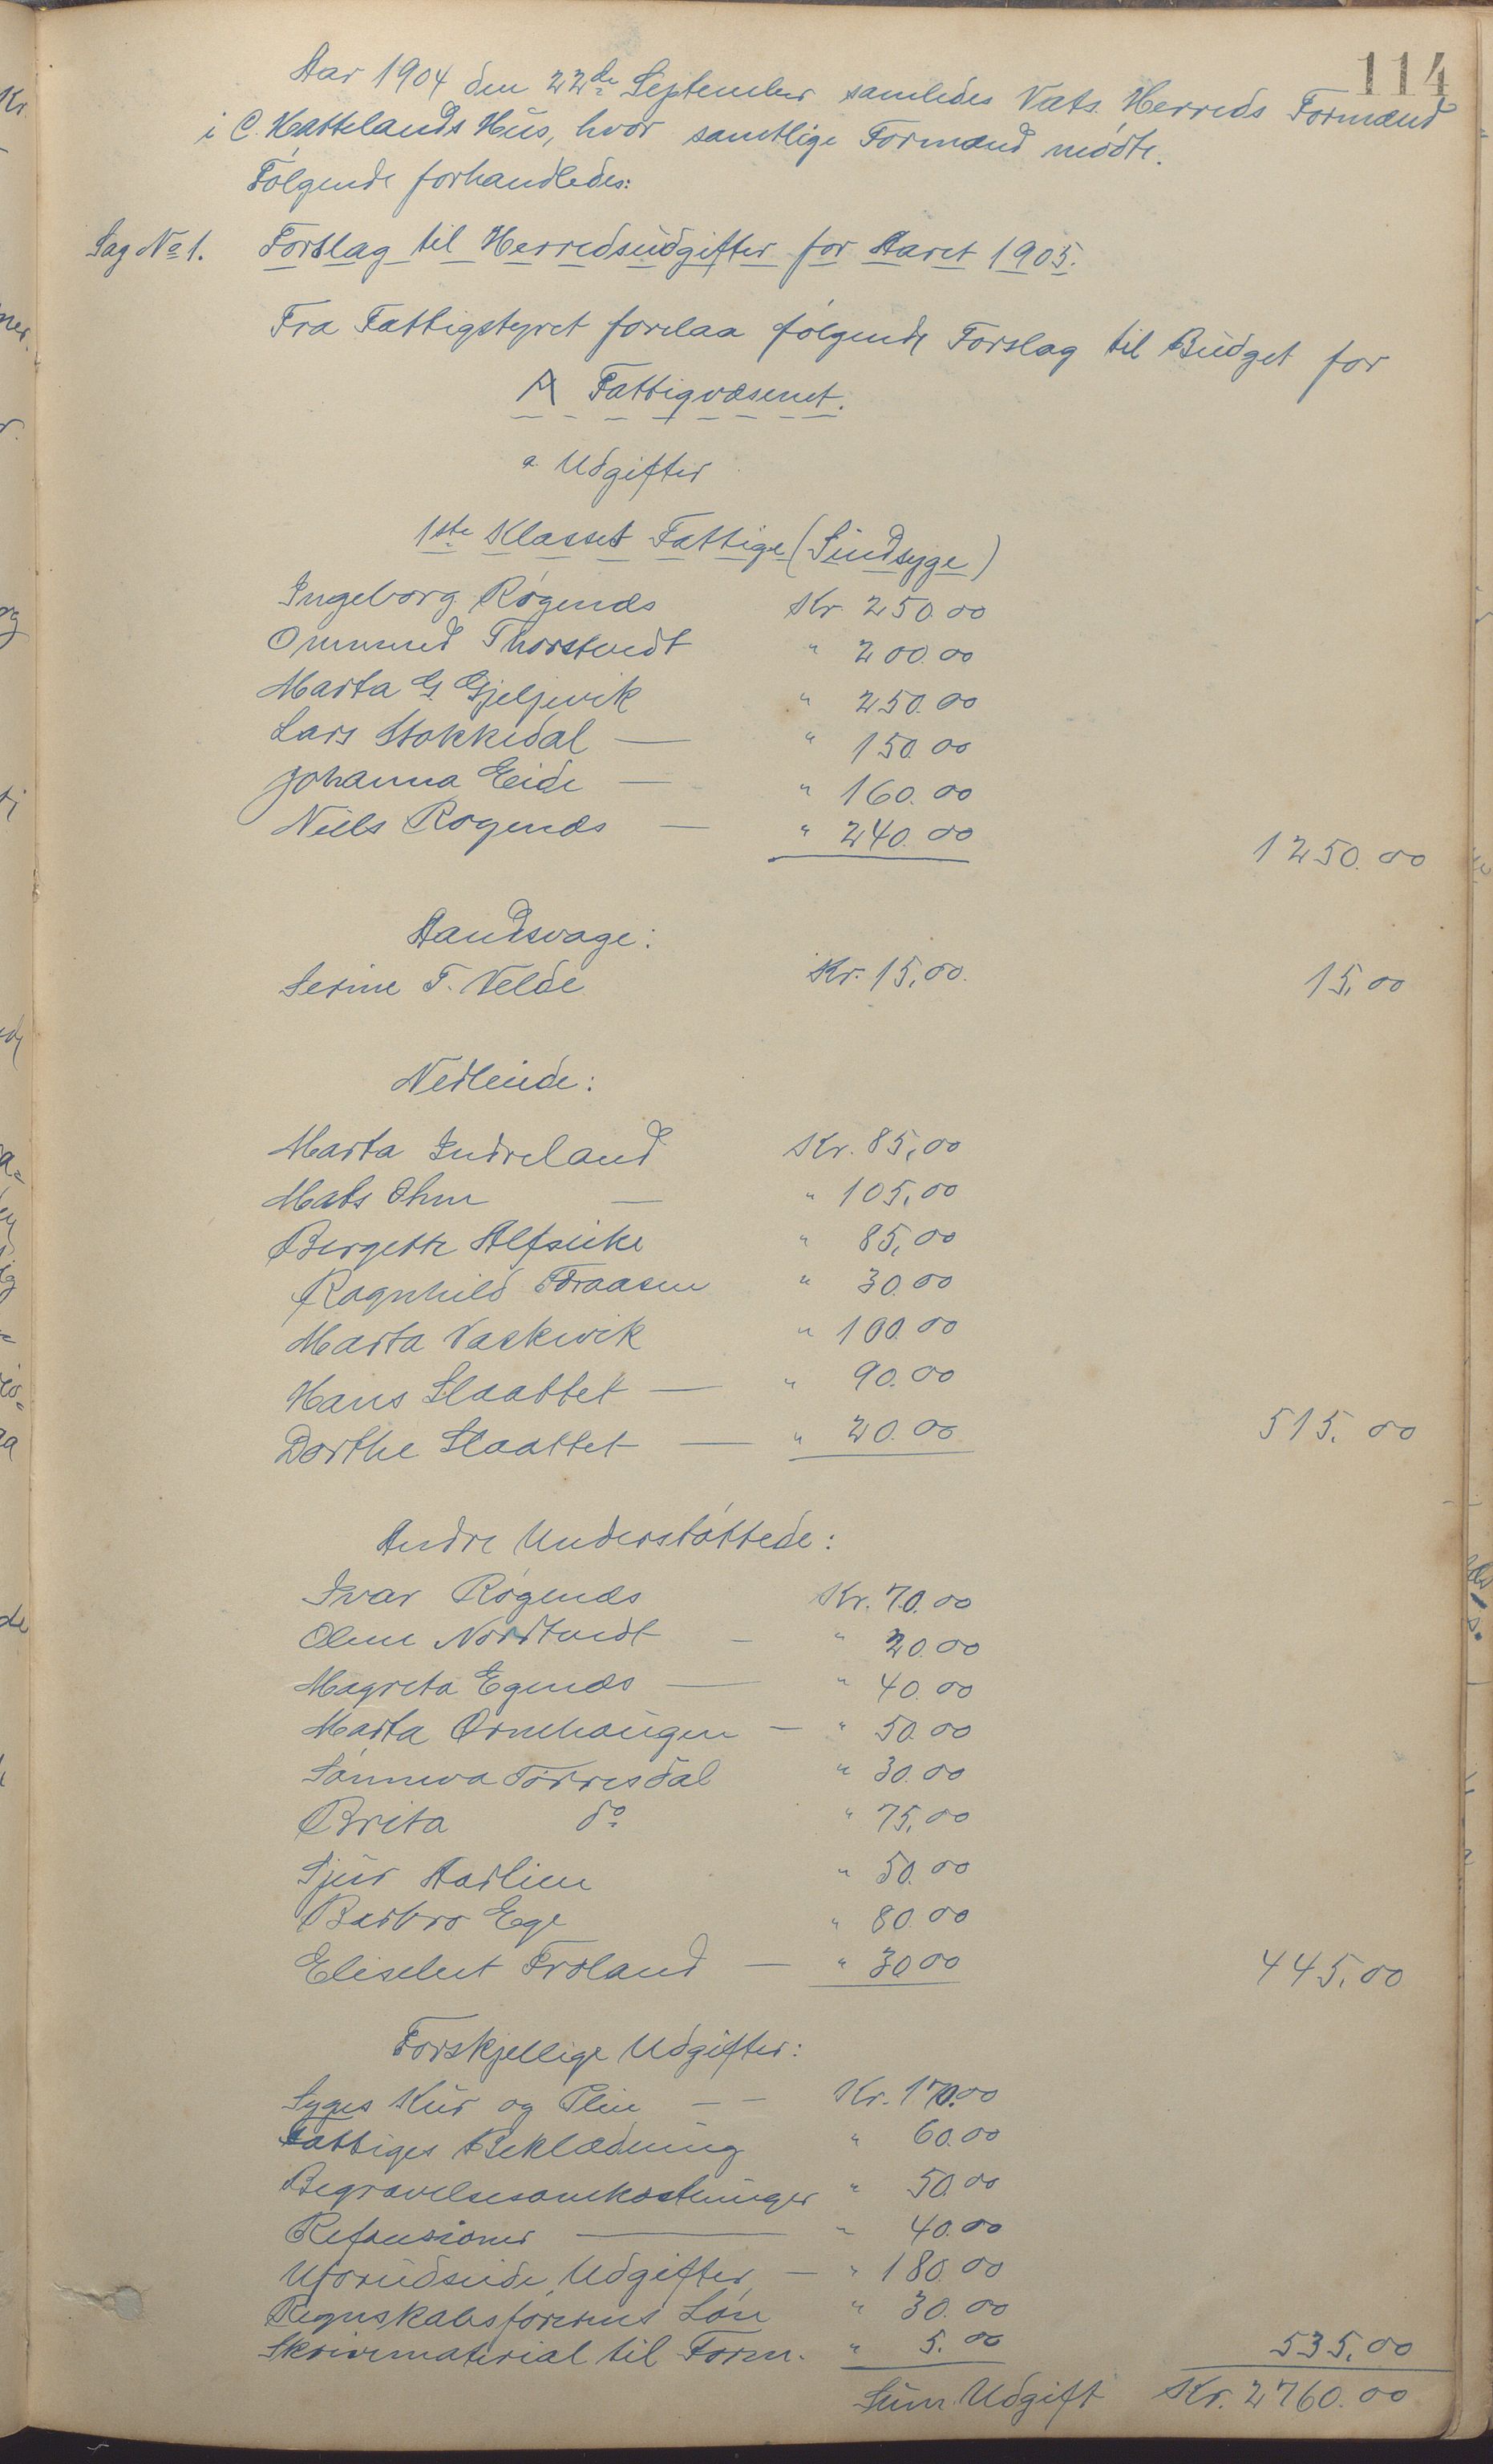 114
Aar 1904 den 22de September samledes Vats Herreds Formænd
i C. Kattelands Hus, hvor samtlige Formænd mødte.
Følgende forhandledes:
Sag No 1. Forslag til Herredsudgifter for Aaret 1905.
Fra Fattigstyret forelaa følgende Forslag til Budget for
A Fattigvæsenet.
a. Udgifter
1ste Klasses Fattige (Sindsyge)
Ingeborg Røgenes Kr. 250.00
Ommund Thorstvedt " 200.00
Marta G. Gjeljevik " 250.00
Lars Stokkedal — " 150.00
Johanna Eide — " 160.00
Niels Røgenæs — " 240.00 1250.00
Aandsvage:
Serine T. Velde Kr. 15,00. 15,00
Vedleide:
Marta Indreland Kr. 85,00
Mats Ohm — " 105,00
Bergette Alfseike " 85,00
Ragnhild Foraasen " 30.00
Marta Vaskevik " 100.00
Hans Slaattet — " 90.00
Dorthe Slaattet — " 20.00 515.00
Andre Understøttede:
Ivar Røgenæs Kr. 70.00
Oline Nordtvedt — " 20.00
Magreta Egenæs — " 40.00
Marta Ørnehaugen — " 50.00
Sønneva Tørresdal " 30.00
Brita do " 75,00
Sjur Aarlien " 50.00
Barbro Ege " 80.00
Elisebet Frøland — " 30.00 445.00
Forskjellige Udgifter:
Syges Kur og Pleie — — Kr. 170.00
Fattiges Beklædning " 60.00
Begravelsesomkostninger " 50.00
Refusioner — " 40.00
Uforudseede Udgifter — " 180.00
Regnskabsførerens Løn " 30.00
Skrivematerial til Form. " 5.00 535,00
Sum Udgift Kr. 2760.00